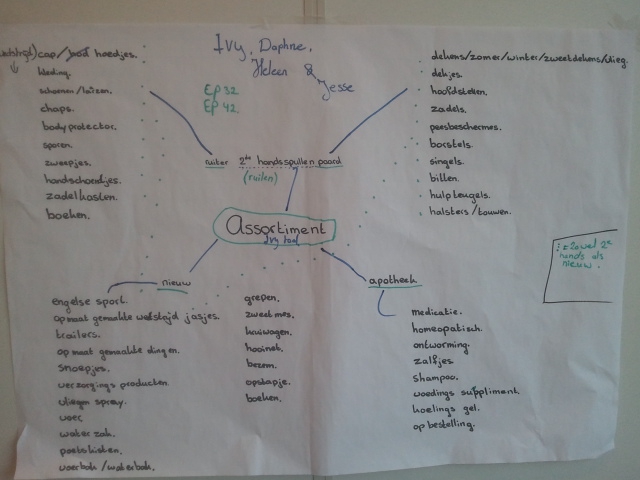 Ivy, Daphne,
Heleen & Jesse
EP 32
EP 42.
cap/ hoedjes.
kleding.
schoenen/laizen.
chaps.
bodyprotector.
sporen.
zweepjes.
handschoendjes.
zadelkasten.
boeken.
dekens/zomer/winter/zweetdekens/vlieg.
dekjes.
hoofdstelen.
zadels.
peesbeschermes.
borstels.
singels.
bitten.
hulpteugels.
halsters/touwen.
ruiter 2de handsspullen paard
(ruilen)
Assortiment
Ivy
nieuw
apotheek
: = zowel 2e
hands als
nieuw.
engelse sport.
op maat gemaakte wetstrijd jasjes.
trailers.
op maat gemaakte dingen.
snoepjes.
verzorgings producten.
vliegen spray.
voer
water zak.
poetskisten.
voerbak/waterbak.
grepen.
zweetmes.
kruiwagen.
hooinet.
bezem.
opstapje.
boeken.
medicatie.
homeopatisch.
ontworming.
zalfjes
shampoo.
voedings suppliment.
koelings gel.
op bestelling.